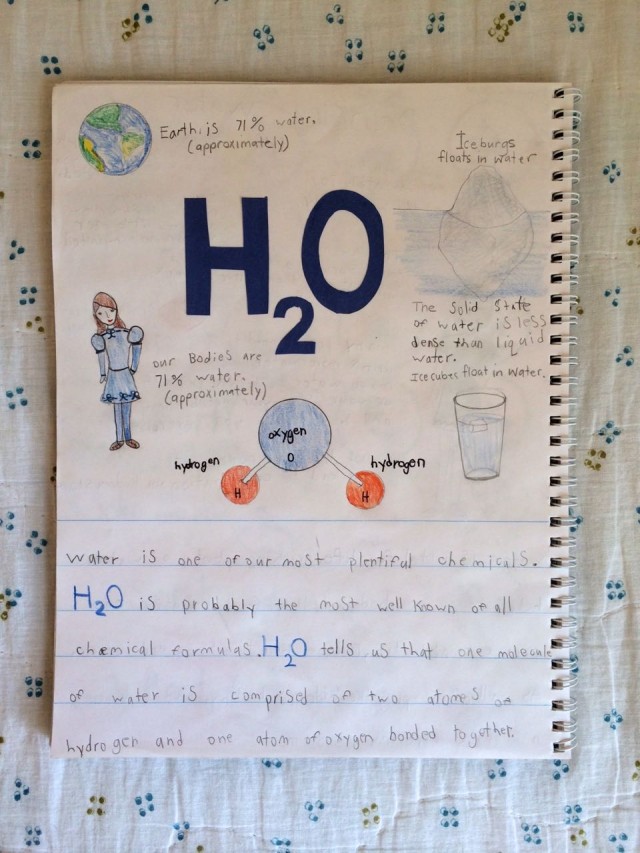 Earth is 71% water.
(approximately)
Iceburgs
floats in water
H2O
The Solid State
of water is less
dense than liquid
water.
Ice cubes float in water.
our Bodies are
71% water.
(approximately)
oxygen
O
hydrogen
H
hydrogen
H
water is one of our most plentiful chemicals.
H2O is probably the most well known of all
chemical formulas. H2O tells us that one molecule
of water is comprised of two atomes of
hydrogen and one atom of oxygen bonded together.